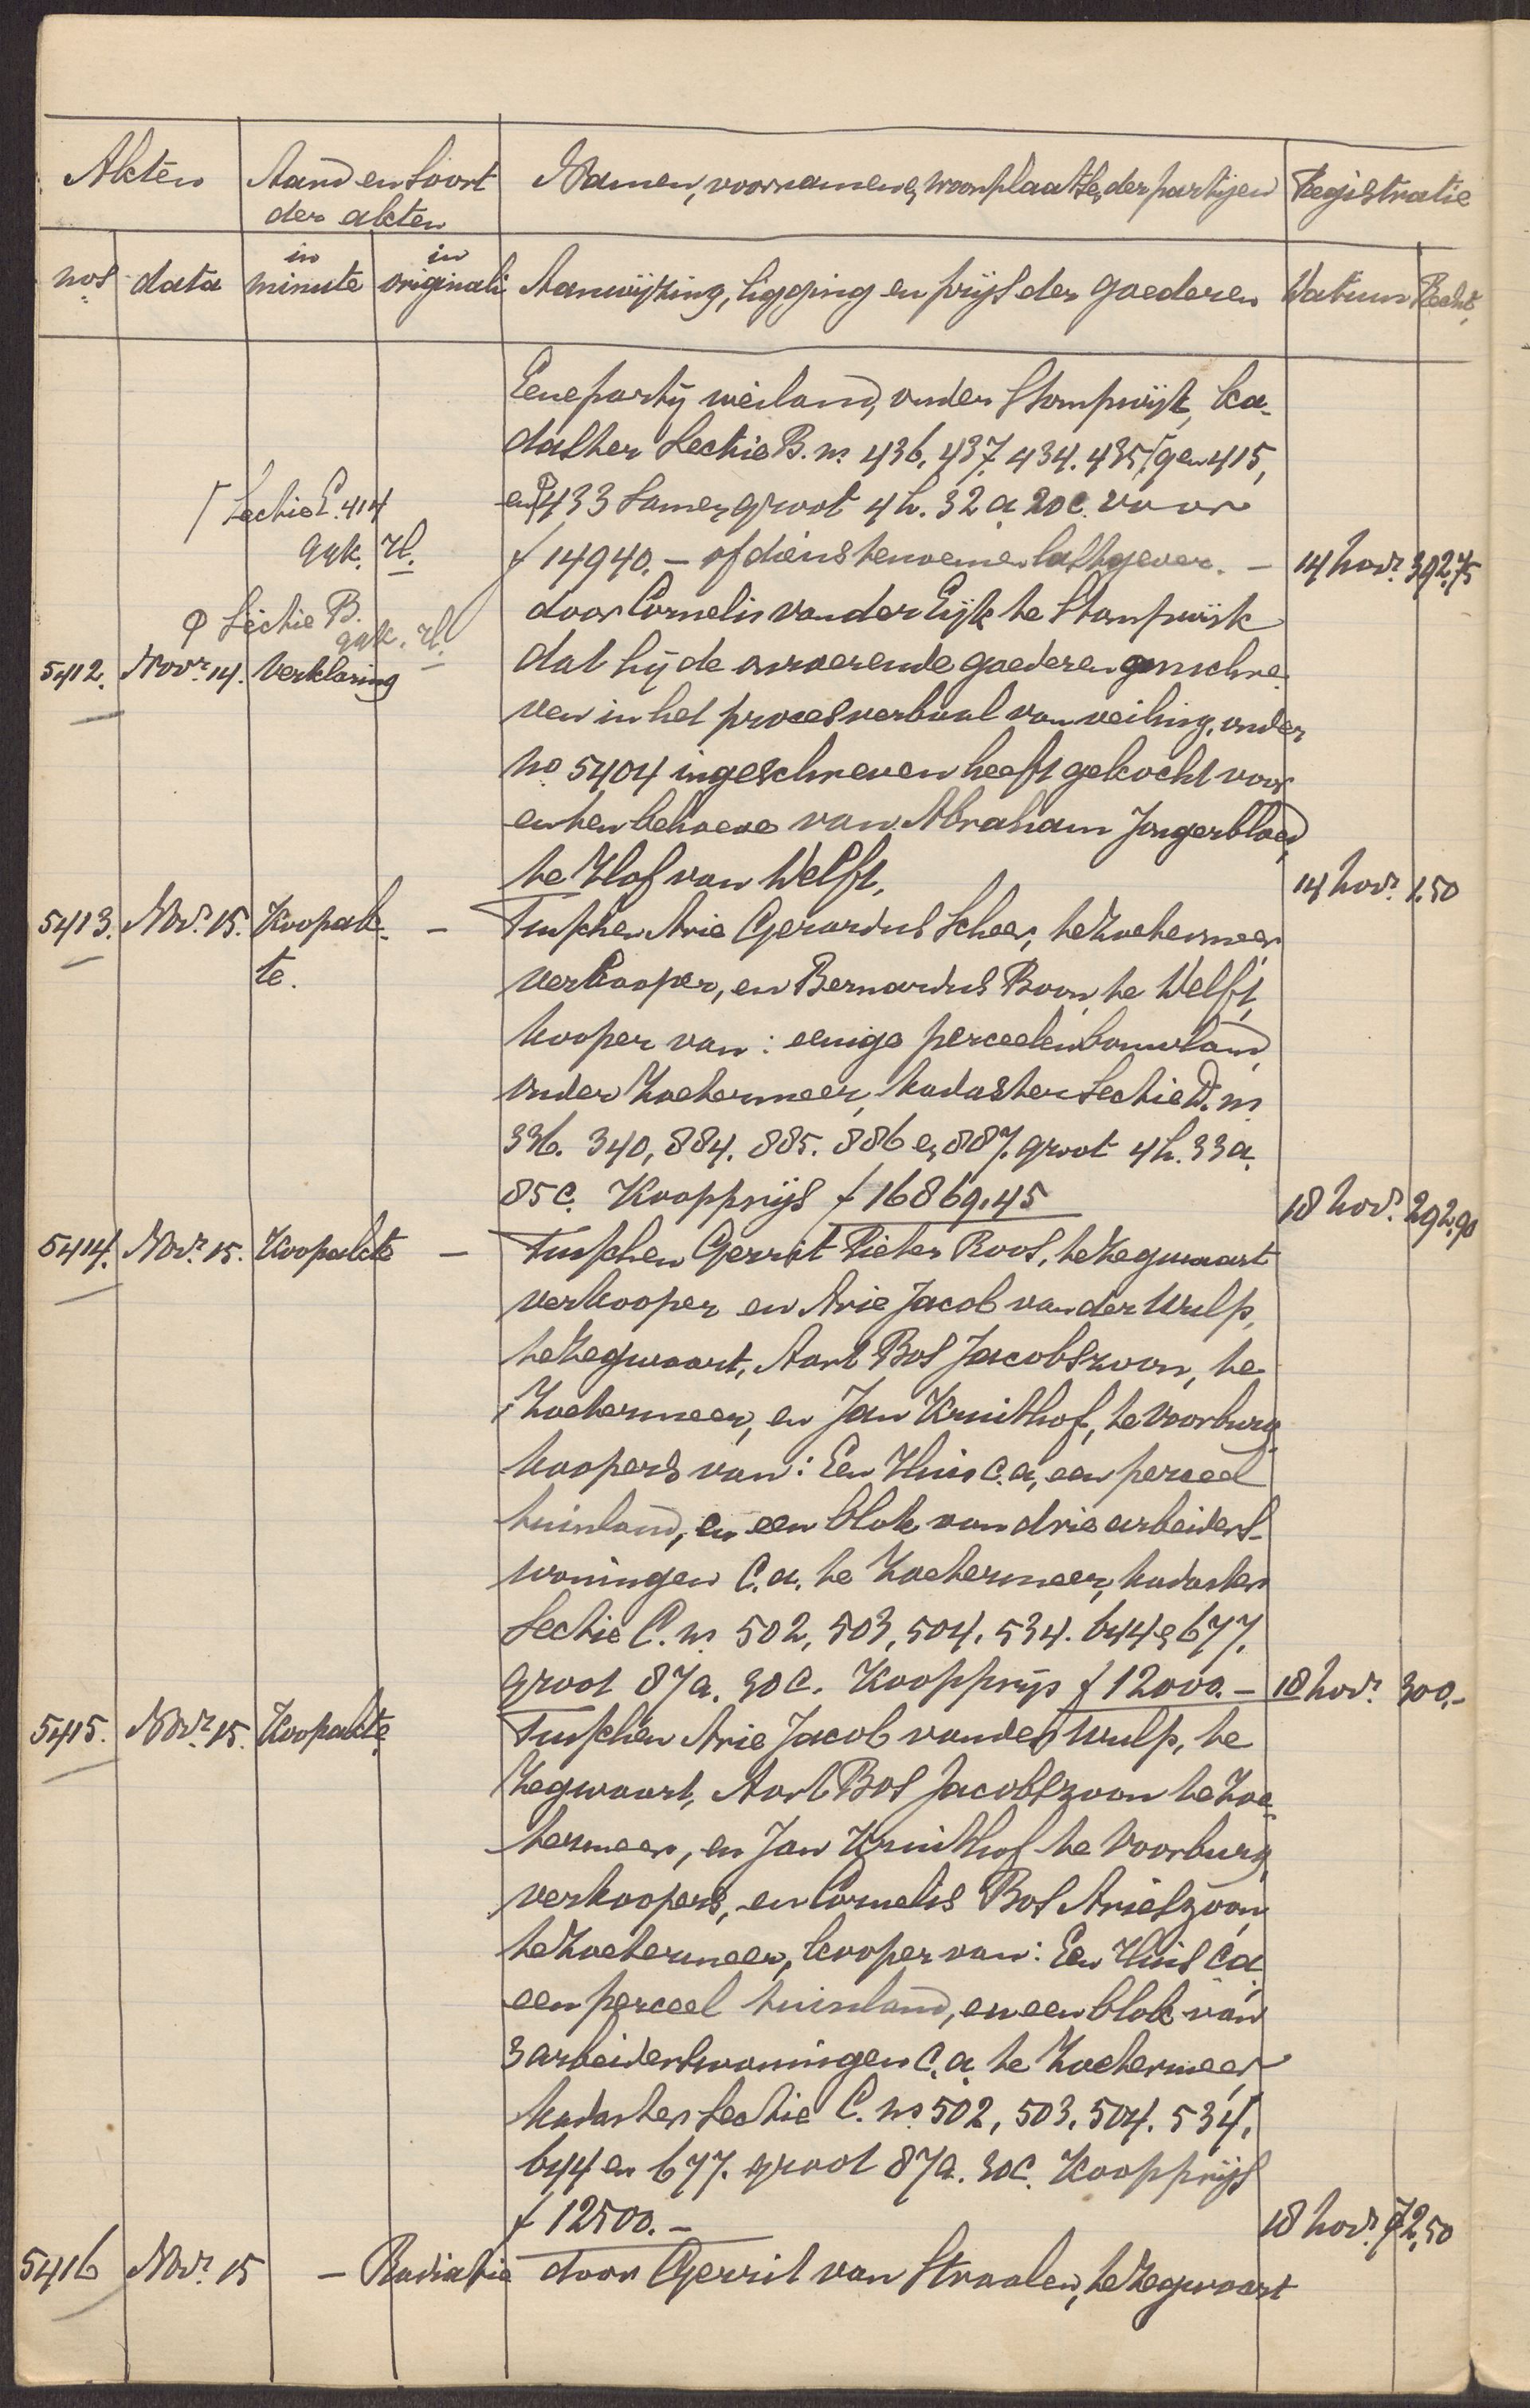 Akten
Aard en Soort
der akten
Namen, voornamen en woonplaatsen der partijen
Registratie
nos
data
in
minute
in
originali
Aanwijzing, ligging en prijs der goederen
Datum
Recht.
Eene partij weiland, onder Stompwijk, ka-
daster Sectie B. ns 436, 437, 434. 435, ⌈ en 415,
en φ 433 Samen groot 4 h. 32 a 20 c. voor
⌈ Sectie E. 414
ggk.
f 14940.- of diens te noemen lastgever. -
14 Novr.
392.75
φ Sectie B.
ggk.
door Cornelis van der Eijk te Stompwijk
5412.
Novr. 14.
Verklaring
dat hij de onroerende goederen omschre-
ven in het procesverbaal van veiling, onder
No 5404 ingeschreven heeft gekocht voor
en ten behoeve van Abraham Jongerbloed,
te Hof van Delft.
14 Novr.
1.50
5413.
Novr. 15.
Koopak-
-
Tusschen Arie Gerardus Scheer, te Zoetermeer
te.
verkooper, en Bernardus Boon, te Delft,
kooper van: eenige perceelen bouwland,
onder Zoetermeer, kadaster Sectie D. ns
336. 340, 884. 885. 886 en 887. groot 4 h. 33 a.
85 c. Koopprijs f 16869.45
18 Novr.
292.90
5414.
Novr. 15.
Koopakte
-
Tusschen Gerrit Pieter Roos, te Zegwaart
verkooper en Arie Jacob van der Wulp,
te Zegwaart, Aart Bos Jacobszoon, te
Zoetermeer, en Jan Kruithof, te Voorburg
koopers van: Een Huis c.a, een perceel
tuinland, en een blok van drie arbeiders-
woningen c.a. te Zoetermeer, kadaster
Sectie C. ns 502, 503, 504. 534. 644 en 677.
groot 87 a. 30 c. Koopprijs f 12000.-
18 Novr.
300.-
5415.
Novr. 15.
Koopakte
Tusschen Arie Jacob van der Wulp, te
Zegwaart, Aart Bos Jacobszoon te Zoe-
termeer, en Jan Kruithof te Voorburg,
verkoopers, en Cornelis Bos Arieszoon,
te Zoetermeer, kooper van: Een Huis c.a
een perceel tuinland, en een blok van
3 arbeiderswoningen c.a. te Zoetermeer
kadaster Sectie C. ns 502, 503. 504. 534.
644 en 677. groot 87 a. 30 c. Koopprijs
f 12500.-
18 Novr.
72,50
5416
Novr. 15
-
Radiatie
door Gerrit van Straalen, te Zegwaart